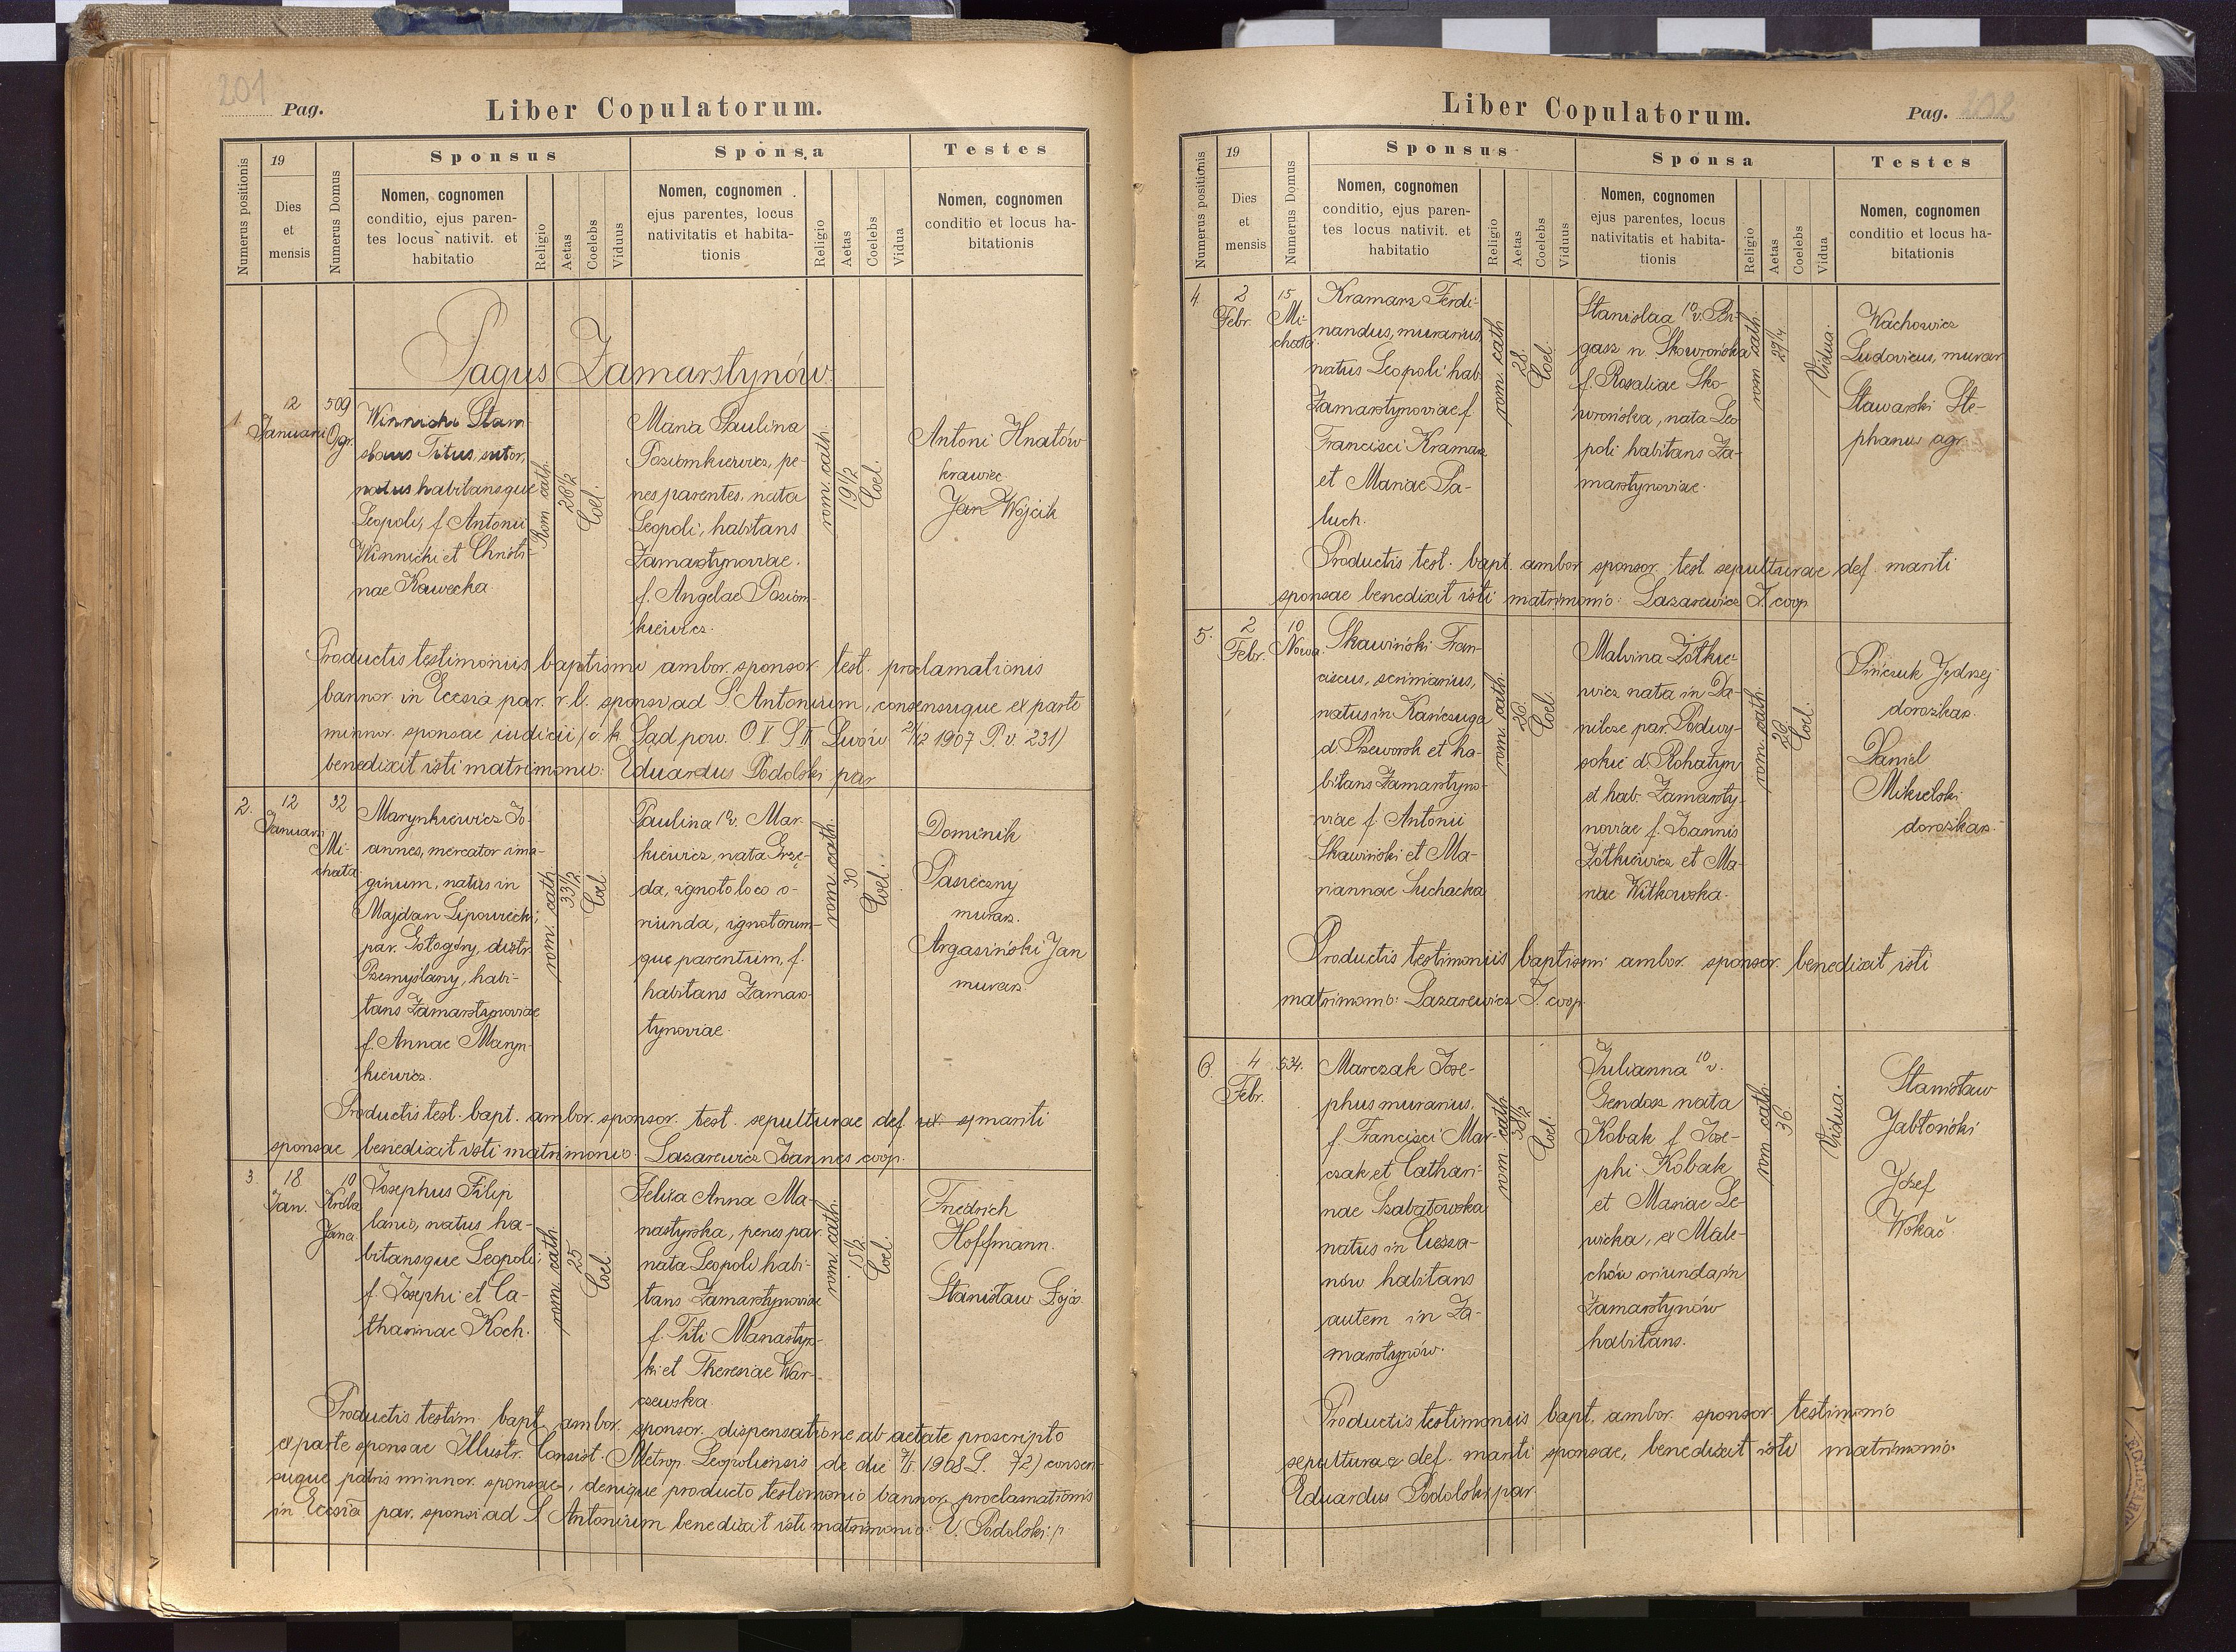 201
Pag.
Liber Copulatorum.
Numerus positionis
19
Dies
et
mensis
Numerus Domus
Sponsus
Nomen, cognomen
conditio, ejus paren-
tes locus nativit. et
habitatio
Religio
Aetas
Coelebs
Viduus
Sponsa
Nomen, cognomen
ejus parentes, locus
nativitatis et habita-
tionis
Religio
Aetas
Coelebs
Vidua
Testes
Nomen, cognomen
conditio et locus ha-
bitationis
Pagus Zamarstynów.
1.
12
Januarii
509
Ogr.
Winnicki Stani-
slaus Titus, sutor,
natus habitansque
Leopoli, f. Antonii
Winnicki et Christi-
nae Kawecka
Rom. cath.
26 1/2
Coel.
Maria Paulina
Poziomkiewicz, pe-
nes parentes, nata
Leopoli, habitans
Zamarstynoviae.
f. Angelae Poziom-
kiewicz.
rom. cath.
19 1/2
Coel.
Antoni Hnatów
krawiec
Jan Wójcik
Productis testimoniis baptismi ambor. sponsor. test. proclamationis
bannor. in Eccsia par. r. l. sponsi ad S. Antonium, consensuque ex parte
minnor. sponsae iudicii (c. k. Sąd pow. O V S II Lwów 21/12 1907 P. v. 231)
benedixit isti matrimonio: Eduardus Podolski par
2.
12
Januarii
32
Mi-
chała
Marynkiewicz Jo-
annes, mercator ima-
ginum, natus in
Majdan Lipowiecki,
par. Gołogóry, distr.
Przemyślany, habi-
tans Zamarstynoviae
f. Annae Maryn-
kiewicz.
rom. cath.
33 1/2
Coel
Paulina 1o v. Mar-
kiewicz, nata Grzę-
da, ignoto loco o-
riunda, ignotorum-
que parentum, f.
habitans Zamars-
tynoviae.
rom. cath.
30
Coel.
Dominik
Pasieczny
murarz.
Argasiński Jan
murarz.
Productis test. bapt. ambor. sponsor. test. sepulturae def. mariti
sponsae benedixit isti matrimonio. Lazarewicz Joannes coop.
3.
18
Jan.
10
Króla
Jana
Josephus Filip
lanio, natus ha-
bitansque Leopoli,
f. Josephi et Ca-
tharinae Koch.
rom. cath.
25
Coel.
Felixa Anna Ma-
nastyrska, penes par.
nata Leopoli habi-
tans Zamarstynoviae
f. Titi Manastyr-
ki et Theresiae War-
czewska
rom. cath.
15 1/2
Coel.
Friedrich
Hoffmann.
Stanisław
Productis testim. bapt. ambor. sponsor. dispensatione ab aetate proscripto
ex parte sponsae Illustr. Consist. Metrop. Leopoliensis de die 7/I 1908 L. 72) consen-
suque patris minnor. sponsae, denique producto testimonio bannor. proclamationis
in Eccsia par. sponsi ad S. Antonium benedixit isti matrimonio: E. Podolski p
Liber Copulatorum.
Pag.
202
Numerus positionis
19
Dies
et
mensis
Numerus Domus
Sponsus
Nomen, cognomen
conditio, ejus paren-
tes locus nativit. et
habitatio
Religio
Aetas
Coelebs
Viduus
Sponsa
Nomen, cognomen
ejus parentes, locus
nativitatis et habita-
tionis
Religio
Aetas
Coelebs
Vidua
Testes
Nomen, cognomen
conditio et locus ha-
bitationis
4.
2
Febr.
15
Mi-
chała.
Kramarz Ferdi-
nandus, murarius,
natus Leopoli hab.
Zamarstynoviae f.
Francisci Kramarz
et Mariae Pa-
luch.
rom. cath
28.
Coel.
Stanislaa 1o v. Bi-
gasz n. Skowrońska
f. Rosaliae Sko-
wrońska, nata Leo
poli habitans Za-
marstynoviae.
rom. cath.
29 1/4
Vidua.
Wachowicz
Ludovicus, murar
Stawarski Ste-
phanus agr.
Productis test. bapt. ambor sponsor. test. sepulturae def. mariti
sponsae benedixit isti matrimonio: Lazarewicz J. coop
5.
2
Febr.
10
Nowa.
Skawiński Fran-
ciscus, scriniarius,
natus in Kańczuga
d. Przeworsk et ha-
bitans Zamarstyno-
viae f. Antonii
Skawiński et Ma-
riannae Suchacka
rom. cath.
26.
Coel.
Malvina Żółkie-
wicz nata in Da-
nilcze par. Podwy-
sokie d. Rohatyn
et hab. Zamarsty-
noviae f. Joannis
Żółkiewicz et Ma-
riae Witkowska.
rom. cath.
26
Coel.
Pińczuk Jędrzej
dorożkarz.
Daniel
Mikielski
dorożkarz.
Productis testimoniis baptismi ambor. sponsor. benedixit isti
matrimonio: Lazarewicz J. coop.
6.
4
Febr.
534.
Marczak Jose-
phus murarius,
f. Francisci Mar-
czak et Cathari-
nae Szabatowska
natus in Cieszа-
nów habitans
autem in Za-
marstynów.
rom. cath.
38 1/2
Coel.
Julianna 1o v.
Gendosz nata
Kobak f. Jose-
phi Kobak
et Mariae Le-
wicka, ex Male-
chów oriunda in
Zamarstynów
habitans.
rom cath.
36.
Vidua.
Stanisław
Jabłoński
Józef
Wokač.
Productis testimoniis bapt. ambor. sponsor. testimonio
sepulturae def. mariti sponsae, benedixit isti matrimonio.
Eduardus Podolski par